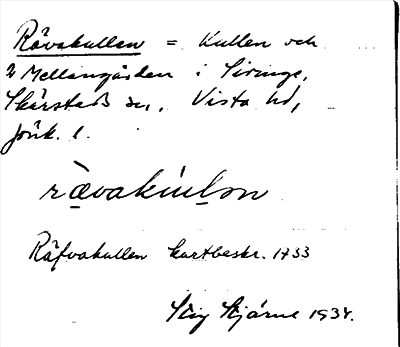 Rävakullen = Kullen och
Mellangården i Siringe,
Skärstads sn, Vista hd,
Jönk. l.
rävakullǝn
Räfvakullen kartbeskr. 1733
Stig Stjärne 1934.